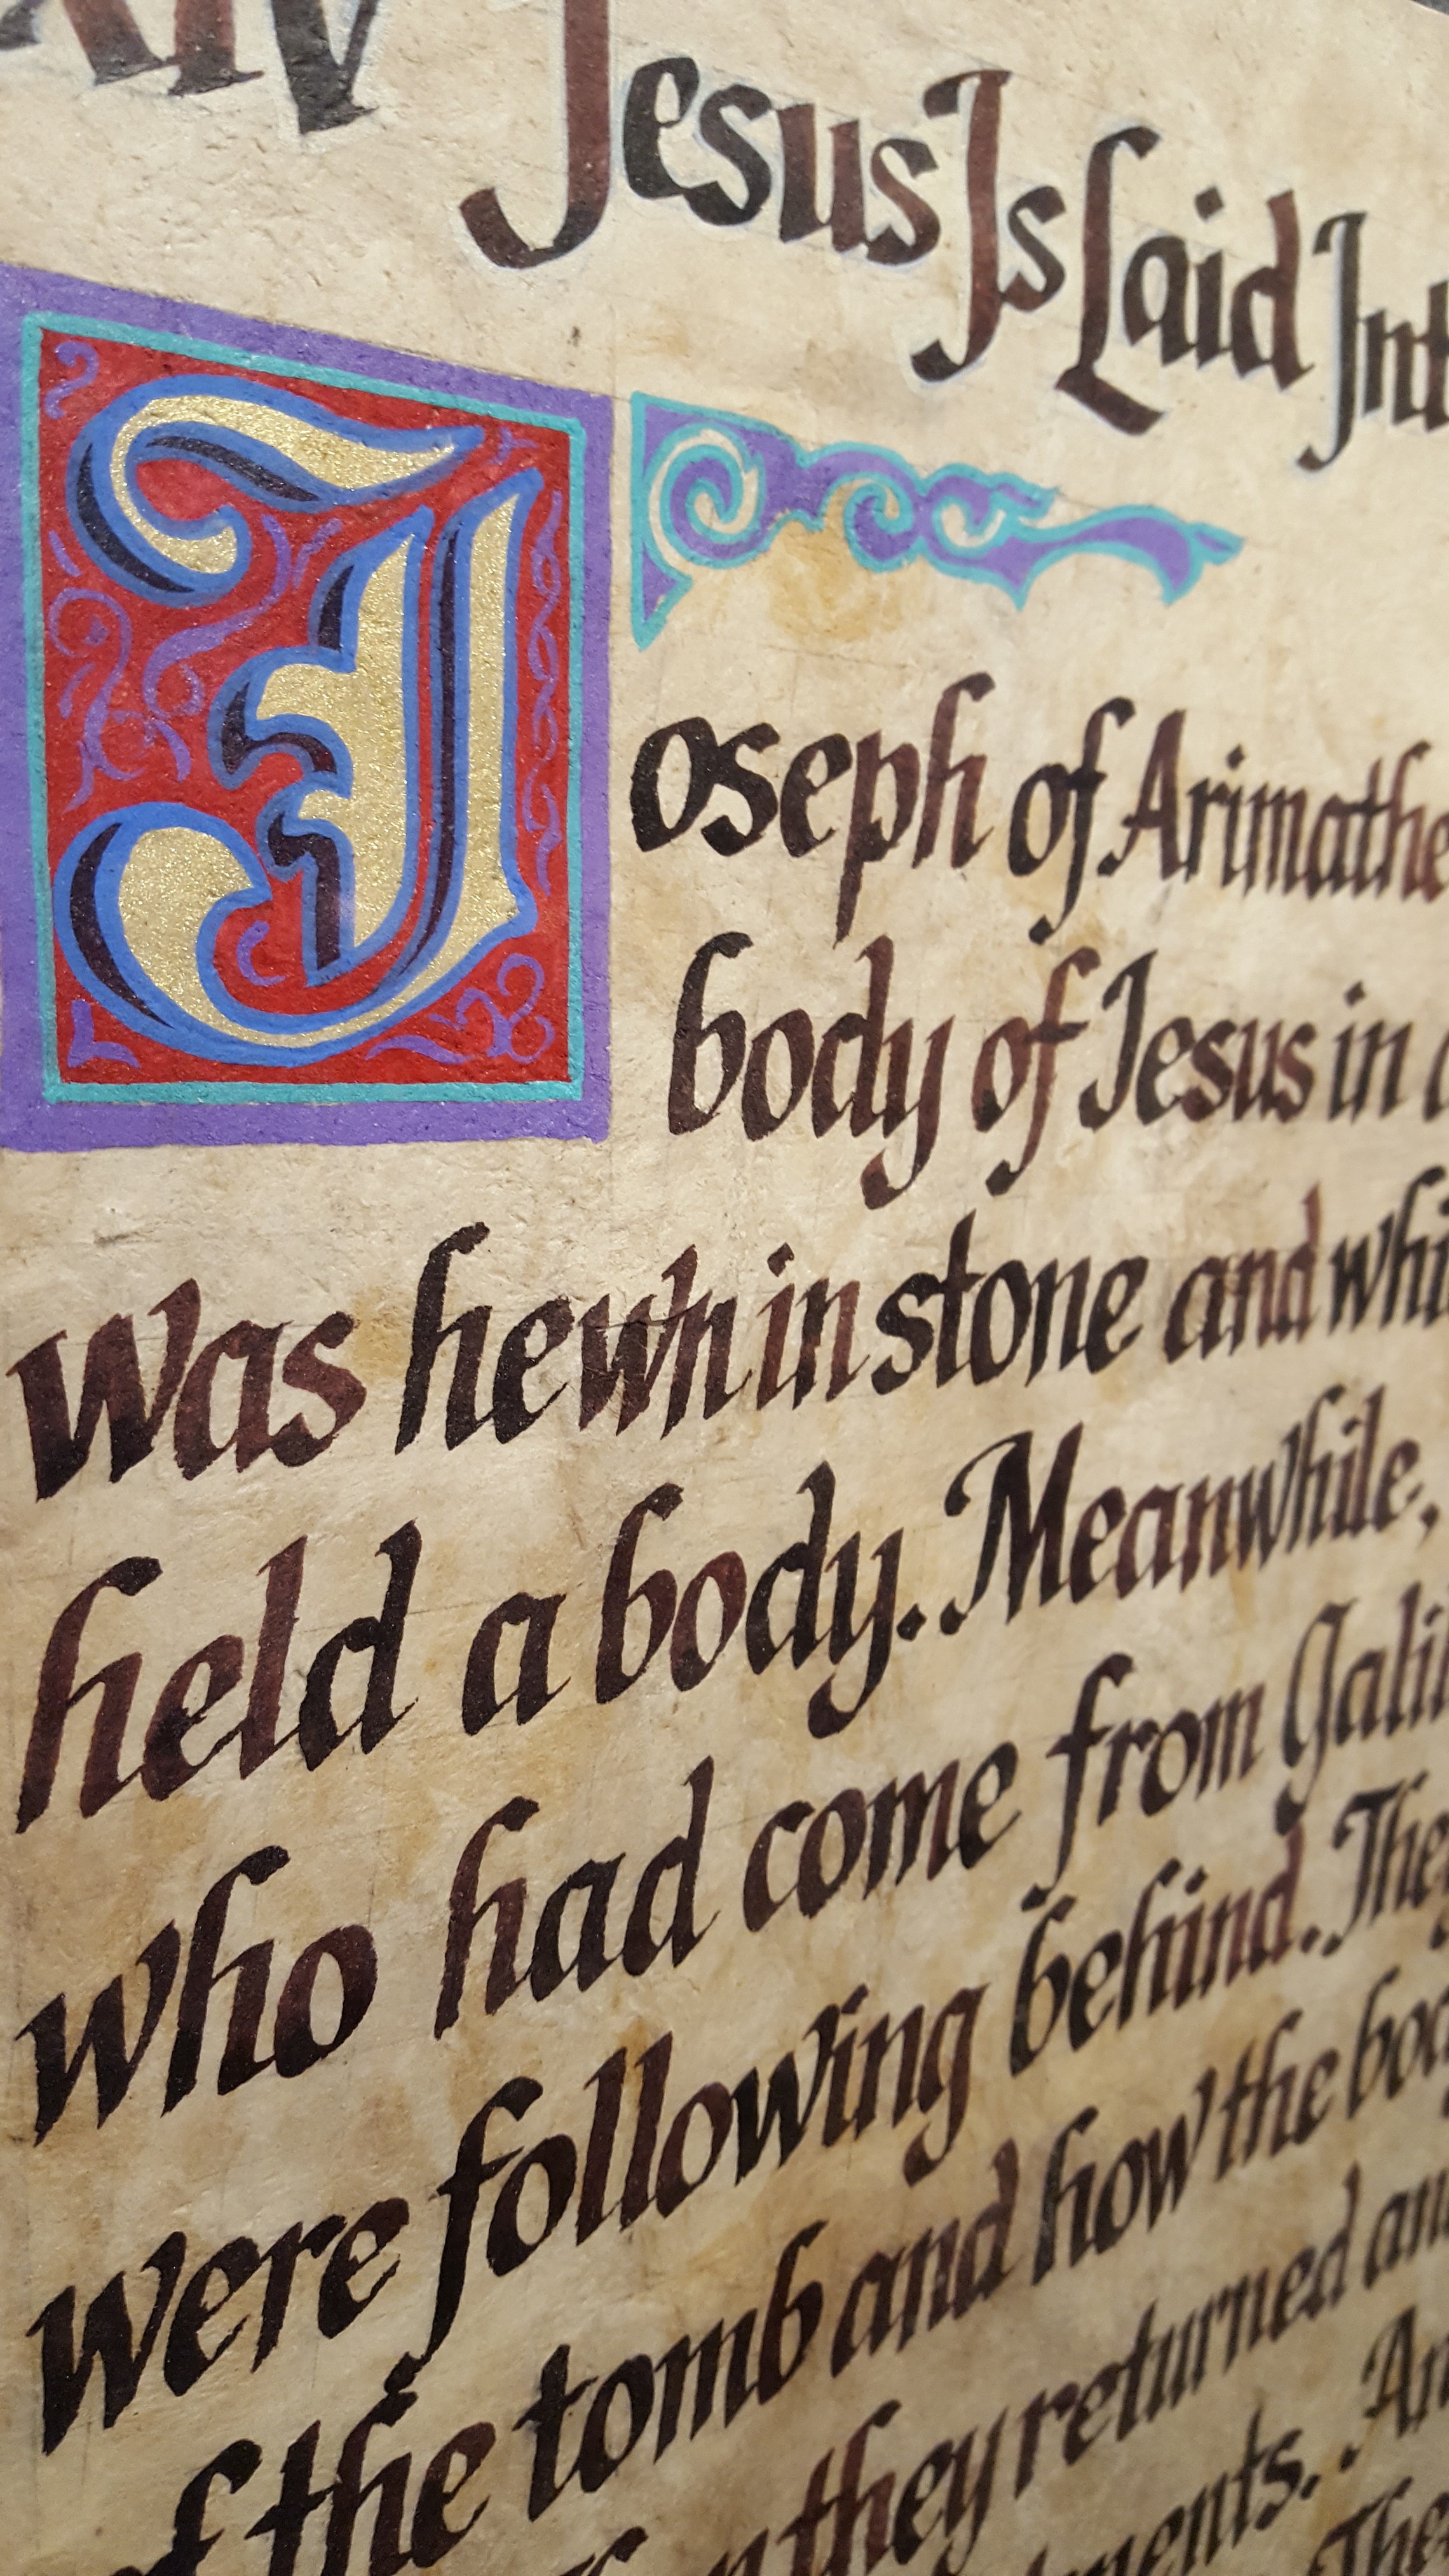 XIV Jesus Is Laid Int
Joseph of Arimathe
body of Jesus in a
was hewn in stone and whi
held a body. Meanwhile,
who had come from Galil
were following behind. They
of the tomb and how the bod
they returned an
ments. An
The